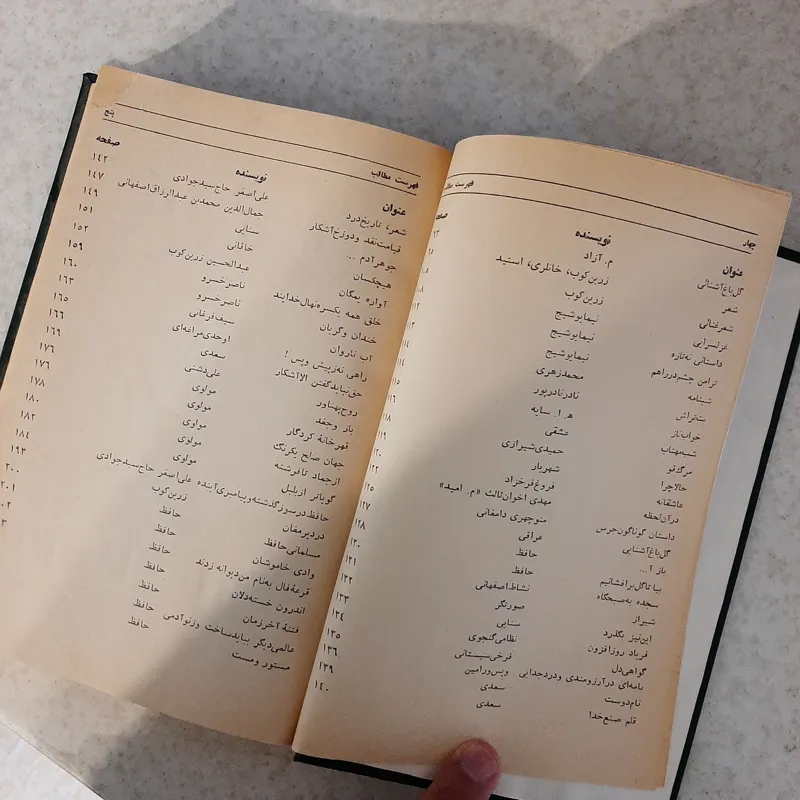 چهار
فهرست
عنوان نویسنده
گل‌باغ‌آشنائی م. آزاد
شعر زرین‌کوب، خانلری، استید
شعرغنائی زرین‌کوب
غزلسرایی نیمایوشیج
داستانی نه‌تازه نیمایوشیج
ترامن چشم‌درراهم نیمایوشیج
شبنامه محمدزهری
بت‌تراش نادرنادرپور
خواب‌ناز ه. ا. سایه
شب‌مهتاب عشقی
مرگ‌قو حمیدی‌شیرازی
حالاچرا شهریار
عاشقانه فروغ‌فرخزاد
درآن‌لحظه مهدی اخوان‌ثالث «م. امید» ۱۲۵
داستان گوناگون‌جرس منوچهری دامغانی ۱۲۷
گل‌باغ‌آشنایی عراقی ۱۲۸
باز آ... حافظ ۱۳۰
بیا تاگل‌برافشانیم حافظ ۱۳۱
سجده به‌صبحگاه نشاط‌اصفهانی ۱۳۲
شیراز صورتگر ۱۳۳
این‌نیز بگذرد سنایی ۱۳۴
فریاد روزافزون نظامی‌گنجوی ۱۳۵
گواهی‌دل فرخی‌سیستانی ۱۳۶
نامه‌ای درآرزومندی ودردجدایی ویس‌ورامین ۱۳۹
نام‌دوست سعدی ۱۴۰
قلم صنع‌خدا سعدی
فهرست مطالب پنج
عنوان نویسنده صفحه
شعر، تاریخ‌درد علی‌اصغر حاج‌سیدجوادی ۱۴۲
قیامت‌نقد ودوزخ‌آشکار جمال‌الدین محمدبن عبدالرزاق‌اصفهانی ۱۴۷
جوهرآدم ... سنایی ۱۴۹
هیچکسان خاقانی ۱۵۱
آواره یمگان عبدالحسین زرین‌کوب ۱۵۲
خلق همه یکسره‌نهال‌خدایند ناصرخسرو ۱۵۹
خندان وگریان ناصرخسرو ۱۶۰
آب ناروان سیف‌فرغانی ۱۶۳
راهی نه‌زپیش وپس! اوحدی‌مراغه‌ای ۱۶۵
حق‌نبایدگفتن الاآشکار سعدی ۱۶۶
روح‌پهناور علی‌دشتی ۱۶۹
باز وجغد مولوی ۱۷۶
قهرخانهٔ کردگار مولوی ۱۷۶
جهان صلح یکرنگ مولوی ۱۷۸
ازجماد تافرشته مولوی ۱۸۰
گویاتر ازبلبل مولوی ۱۸۲
حافظ‌درسوزگذشته‌وپیامبری‌آینده علی‌اصغر حاج‌سیدجوادی ۱۸۴
دردیرمغان زرین‌کوب ۱۹۳
مسلمانی‌حافظ حافظ ۲۰۰
وادی خاموشان حافظ ۲۰۱
قرعهٔ‌فال به‌نام من‌دیوانه زدند حافظ
اندرون خسته‌دلان حافظ
فتنهٔ آخرزمان حافظ
عالمی‌دیگر بباید‌ساخت وزنوآدمی حافظ
مستور ومست حافظ